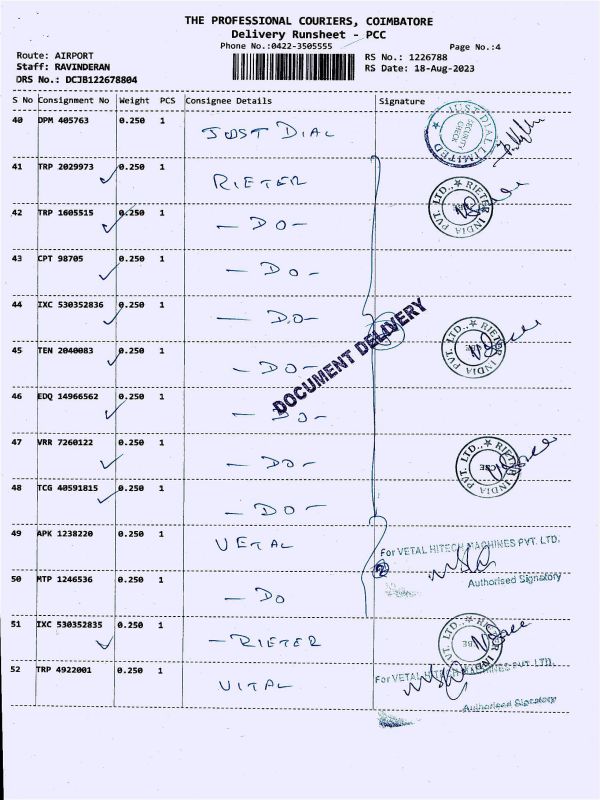 THE PROFESSIONAL COURIERS, COIMBATORE
Delivery Runsheet - PCC
Phone No.:0422-3505555 Page No.:4
Route: AIRPORT RS No.: 1226788
Staff: RAVINDERAN RS Date: 18-Aug-2023
DRS No.: DCJB122678804
S No Consignment No Weight PCS Consignee Details Signature
40 DPM 405763 0.250 1 JUST DIAL
JUST DIAL LIMITED SECURITY CHECK
41 TRP 2029973 0.250 1 RIETER
RIETER INDIA PVT. LTD.,
42 TRP 1605515 0.250 1 - DO -
43 CPT 98705 0.250 1 - DO -
44 IXC 530352836 0.250 1 - DO -
DOCUMENT DELIVERY
RIETER INDIA PVT. LTD.,
45 TEN 2040083 0.250 1 - DO -
46 EDQ 14966562 0.250 1 - DO -
47 VRR 7260122 0.250 1 - DO -
RIETER INDIA PVT. LTD.,
48 TCG 40591815 0.250 1 - DO -
49 APK 1238220 0.250 1 VETAL
For VETAL HITECH MACHINES PVT. LTD.
Authorised Signatory
50 MTP 1246536 0.250 1 - DO
2
51 IXC 530352835 0.250 1 - RIETER
RIETER INDIA PVT. LTD.,
52 TRP 4922001 0.250 1 VITAL
For VETAL HITECH MACHINES PVT. LTD.
Authorised Signatory